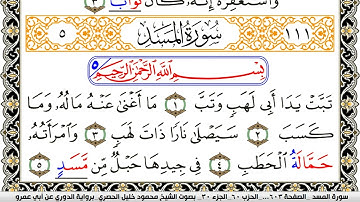 وَاسْتَغْفِرْهُ إِنَّهُ كَانَ تَوَّابًا ٣
١١١ سُورَةُ المَسَدِ ٥
بِسْمِ اللَّهِ الرَّحْمَٰنِ الرَّحِيمِ
تَبَّتْ يَدَا أَبِي لَهَبٍ وَتَبَّ ١ مَا أَغْنَىٰ عَنْهُ مَالُهُ وَمَا
كَسَبَ ٢ سَيَصْلَىٰ نَارًا ذَاتَ لَهَبٍ ٣ وَامْرَأَتُهُ
حَمَّالَةُ الْحَطَبِ ٤ فِي جِيدِهَا حَبْلٌ مِّن مَّسَدٍ ٥
سورة المسد _الصفحة ٦٠٣... الحزب ٦٠_الجزء ٣٠_ بصوت الشيخ محمود خليل الحصري_برواية الدوري عن أبي عمرو